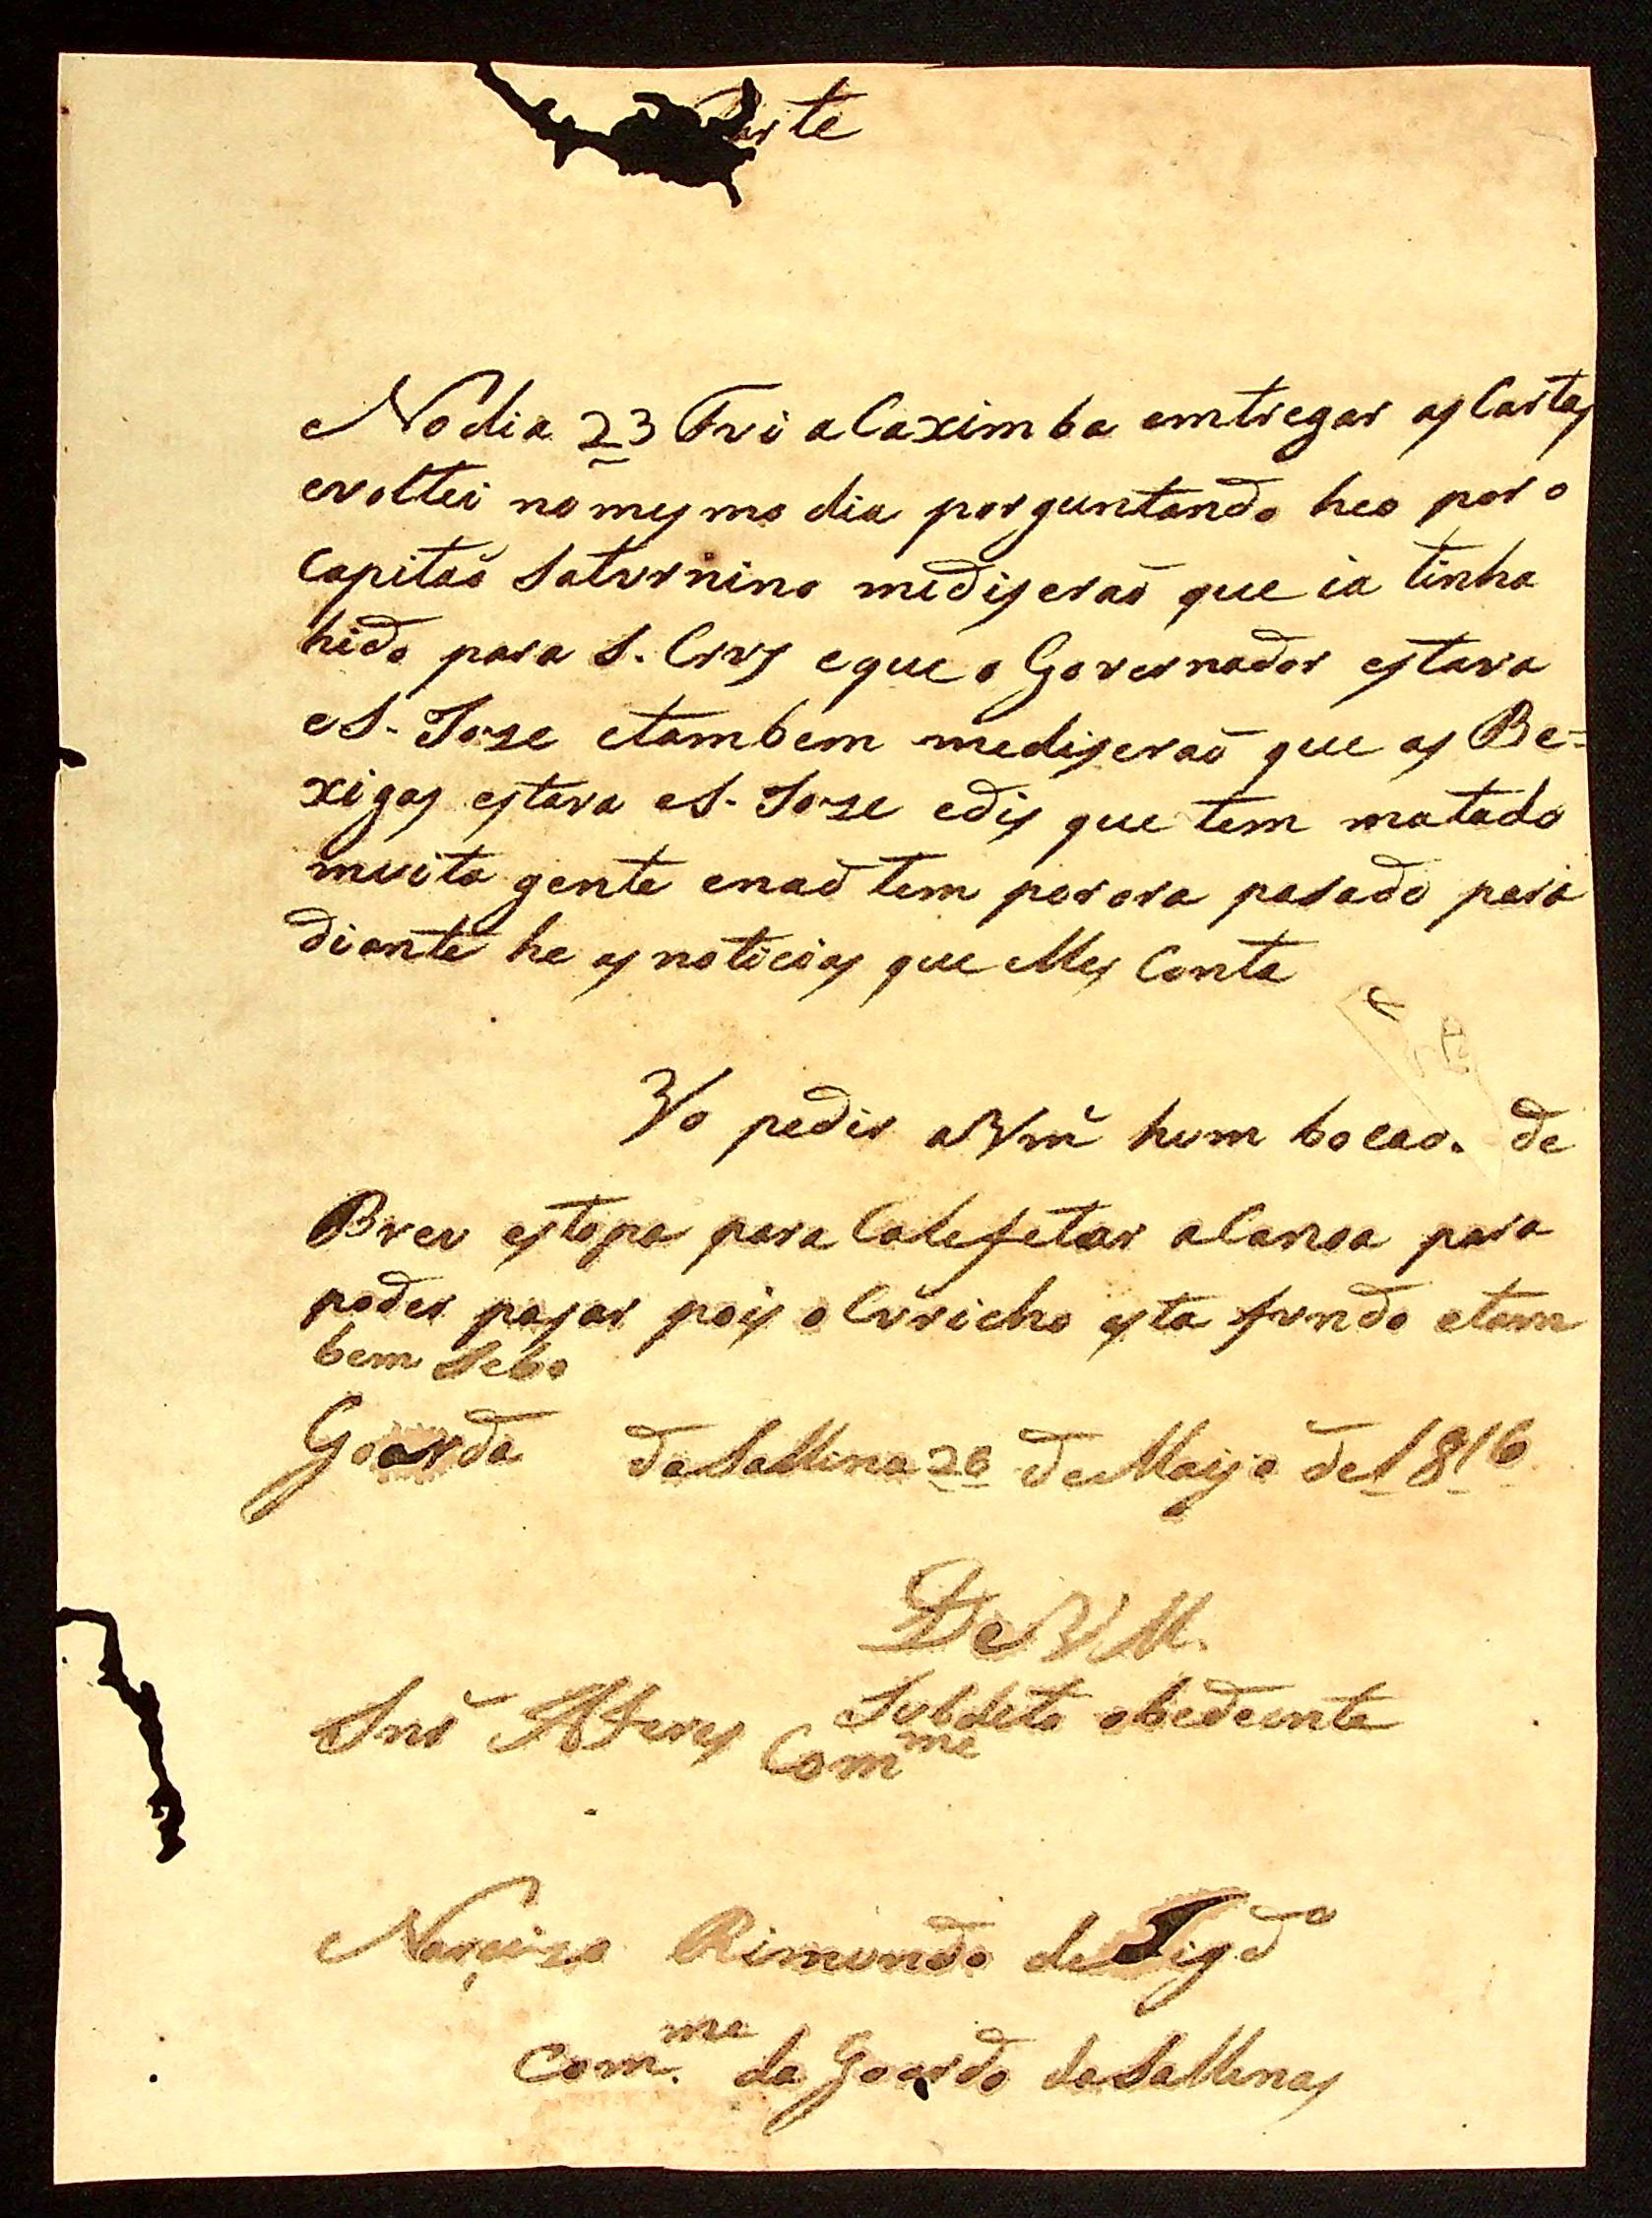 Parte
No dia 23 Fui a Caximba emtregar as Cartas
evoltei no mesmo dia porguntando heo por o
Capitaõ Saturnino mediseraõ que ia tinha
hido para S. Crus eque o Governador estava
eS. Joze etambem mediseraõ que as Be=
xigas estava eS. Joze edis que tem matado
muita gente enaõ tem porora pasado para
diante he as noticias que Mes Conta
Vo pedir aVmc̃ hum bocao. de
Breu estopa para Calefetar aCanoa para
poder pasar pois o Curicho esta fundo etam
bem sebo
Goarda da Sallina 26 de Mayo de 1816
De V M.
Subdeto obedeente
Snr̃ Comme
Narcizo Rimundo de
Comme. da Goarda da Sallinas